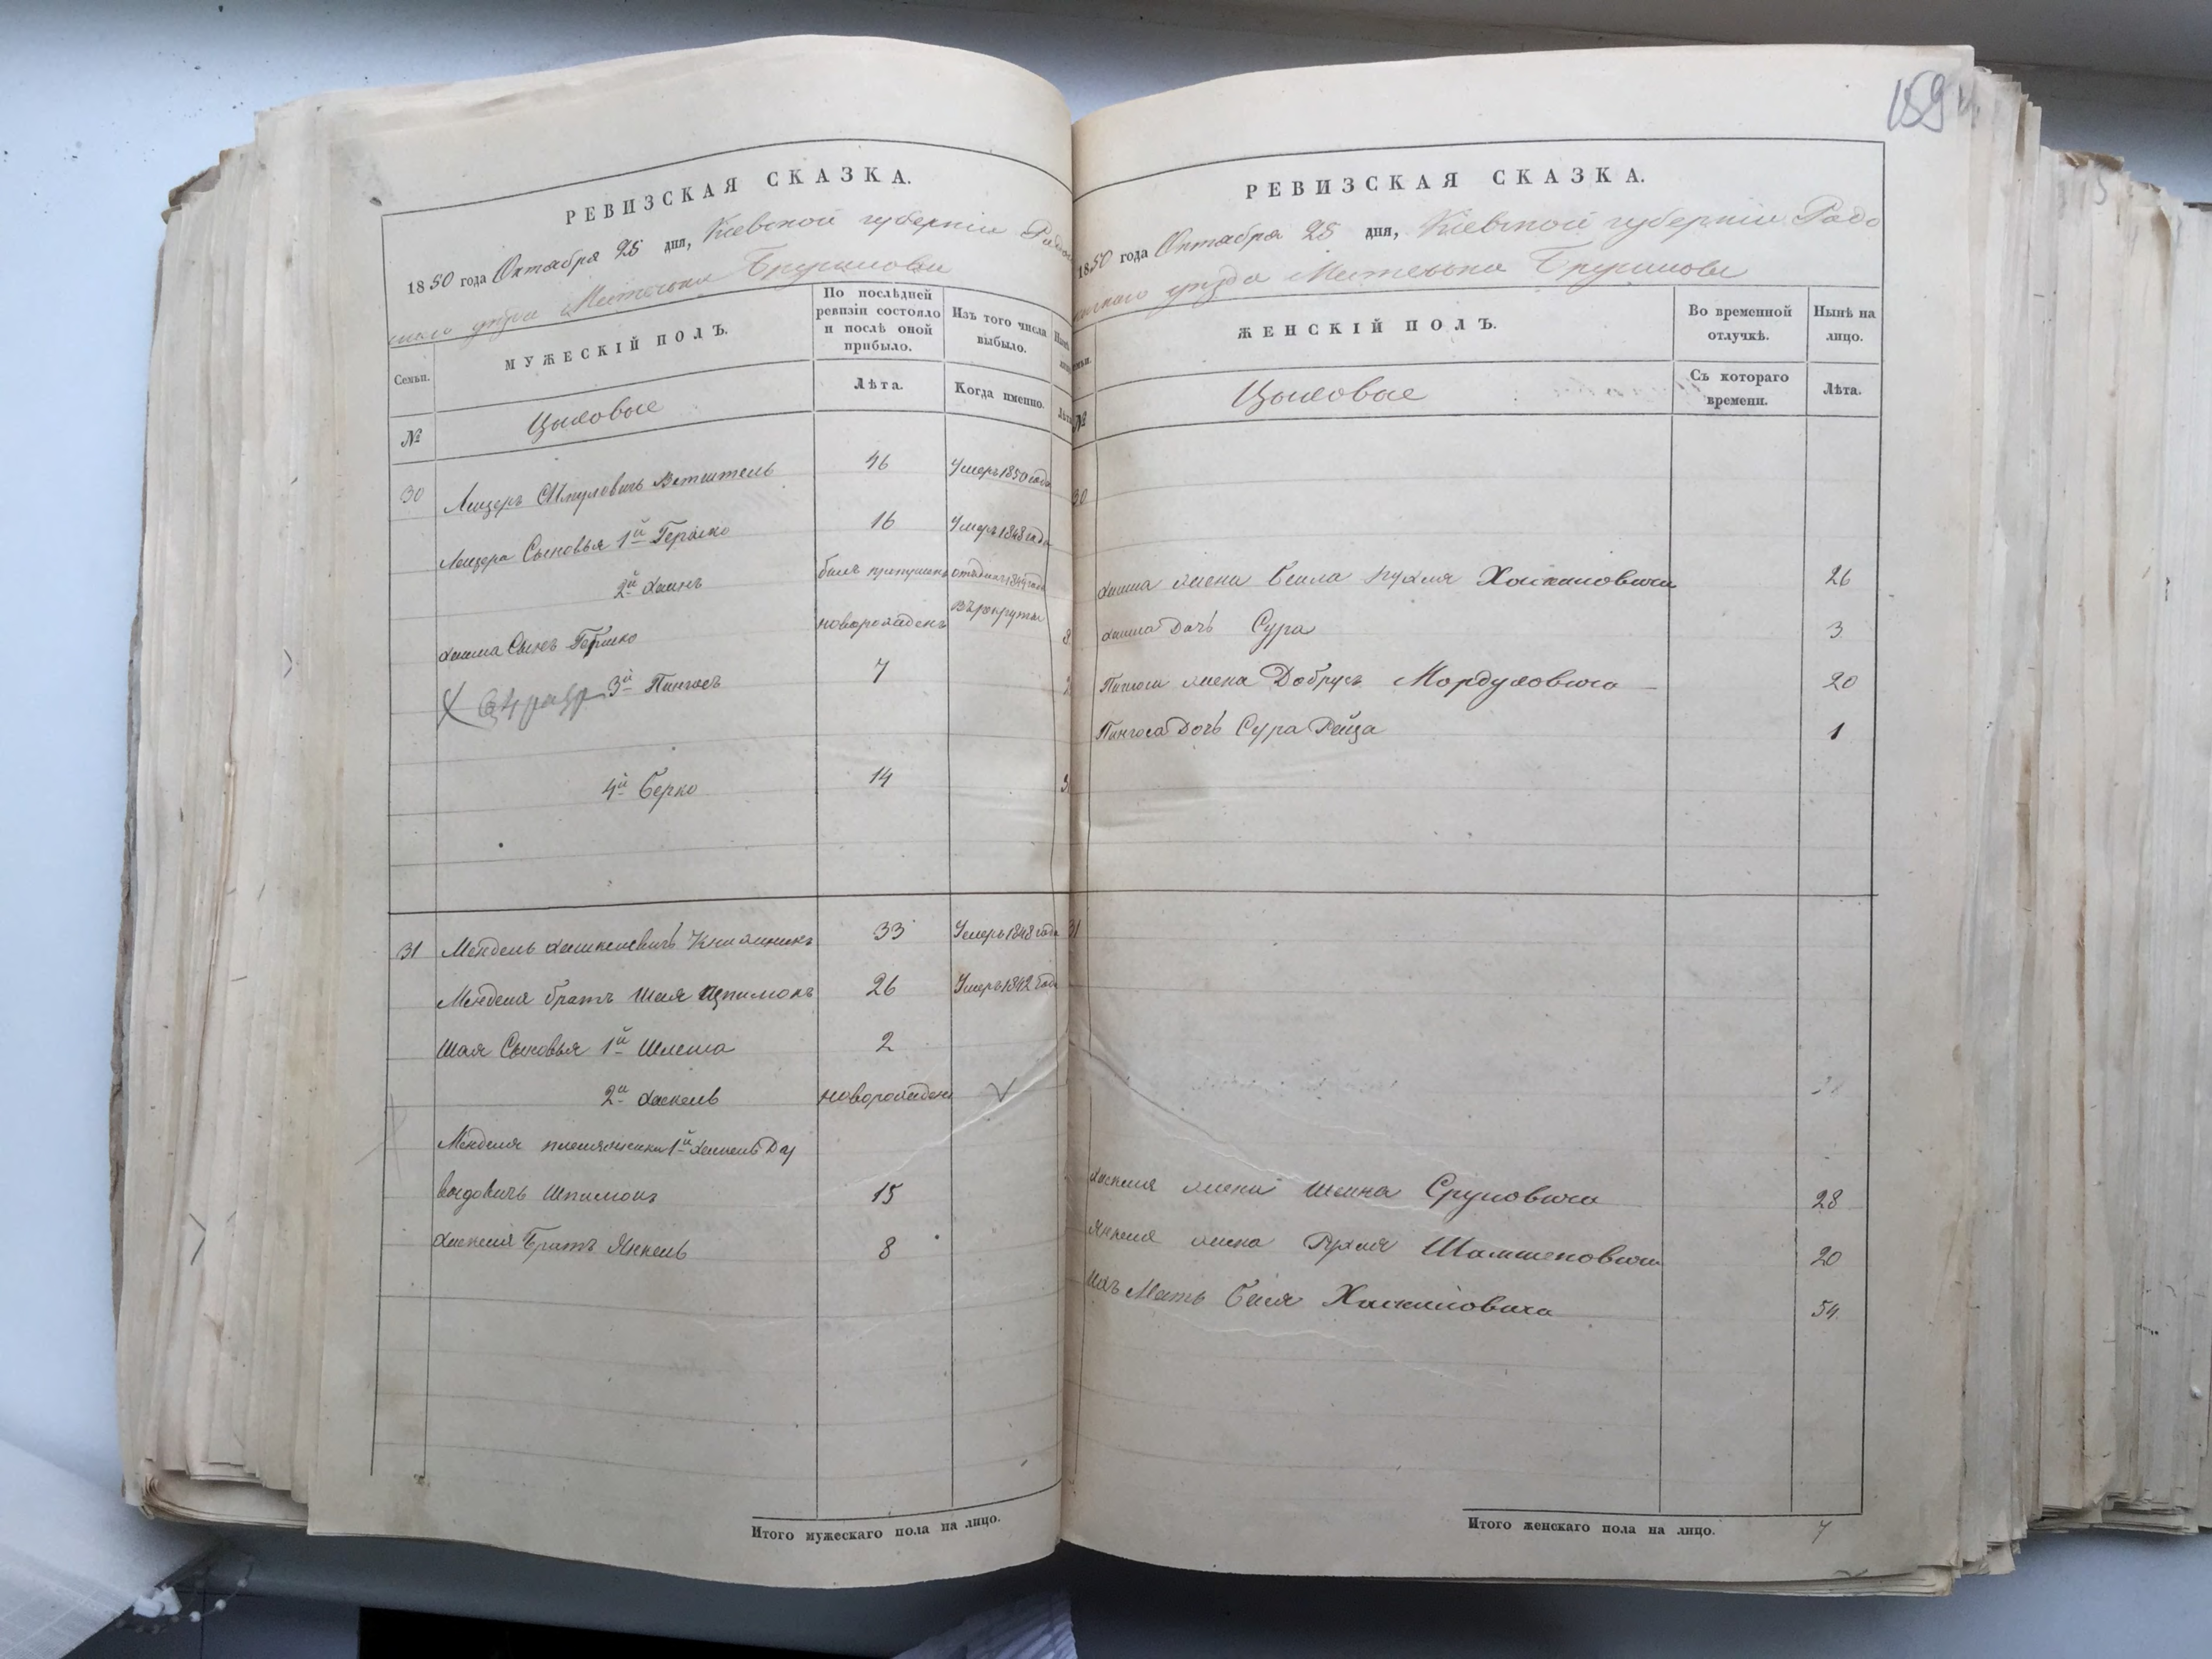 159
РЕВИЗСКАЯ СКАЗКА.
1850 года Октября 25 дня, Кіевской губерніи Радо
уезда Местечка Брусилова
Семьи.
МУЖЕСКІЙ ПОЛЪ.
По послѣдней ревизіи состояло и послѣ оной прибыло.
Изъ того числа выбыло.
Лѣта.
Когда именно.
№
30 Лейзеръ Шмулевичъ 46 Умеръ 1850 года
Лейзера Сыновья 1й Гершко 16 Умеръ 1848 года
2й Хаимъ былъ пропущенъ отданъ 1849 года
въ рекруты
Хаима Сынъ Гершко новорожденъ
3й Пинхасъ 7
4й Берко 14
31 Мендель Хаскелевичъ 33 Умеръ 1848 года
Менделя братъ Шая Шпилюкъ 26 Умеръ 1842 года
Шая Сыновья 1й Шлема 2
2й Хаскель новорожденъ
Менделя племянники 1й Хаскель Ду
выдовичъ Шпилюкъ 15
Хаскеля Братъ Янкель 8
Итого мужескаго пола на лицо.
РЕВИЗСКАЯ СКАЗКА.
1850 года Октября 25 дня, Кіевской губерніи Радо
мысльскаго уѣзда Местечка Брусилова
ЖЕНСКІЙ ПОЛЪ.
Во временной отлучкѣ.
Нынѣ на лицо.
Съ котораго времени.
Лѣта.
№
30
Хаима жена Бейла Рухля Хаскелевичи 26
Хаима Дочь Сура 3
Пинхаса жена Добрусь Мордуховичо 20
Пинхаса Дочь Сура Рейза 1
31
Хаскеля жена Шейна Сруловичо 28
Янкеля жена Рухля 20
Ихъ Мать Бейля Хаскелевича 54
Итого женскаго пола на лицо. 7